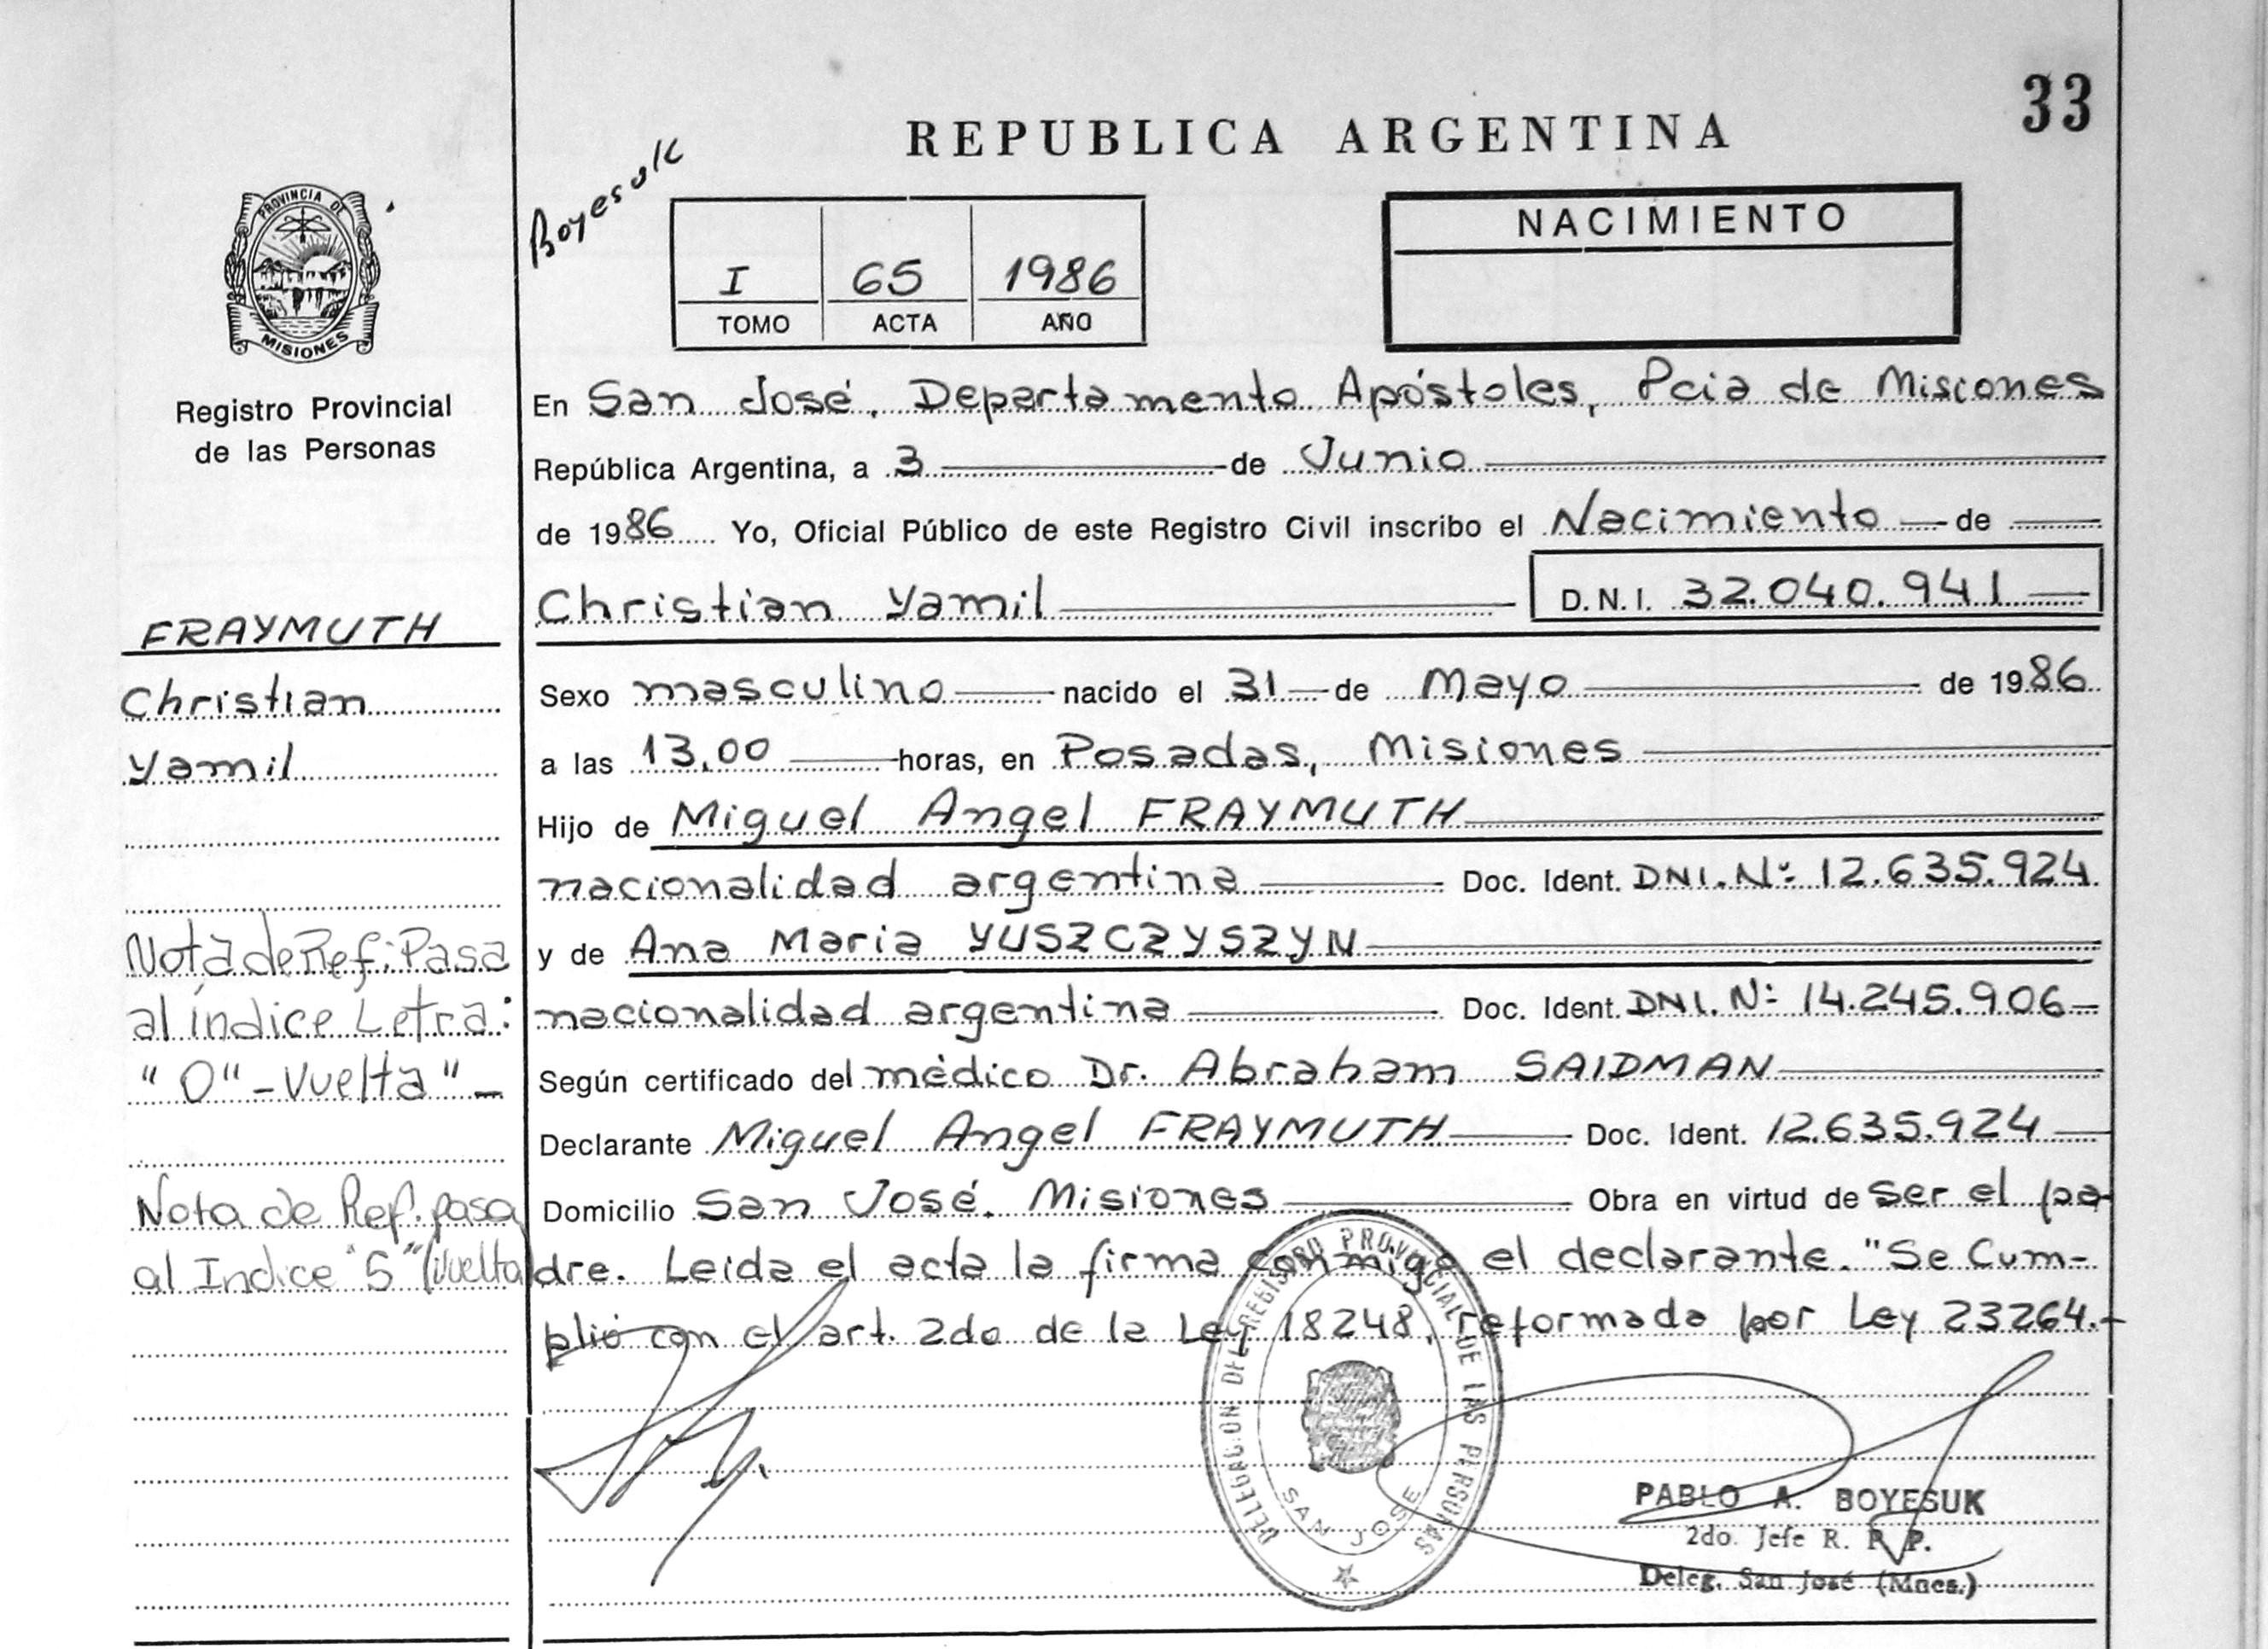 33
REPUBLICA ARGENTINA
Boyesuk
PROVINCIA DE
MISIONES
Registro Provincial
de las Personas
I 65 1986
TOMO ACTA AÑO
NACIMIENTO
En San José, Departamento Apóstoles, Pcia de Misiones
República Argentina, a 3 de Junio
de 1986 Yo, Oficial Público de este Registro Civil inscribo el Nacimiento de
Christian Yamil D.N.I. 32.040.941
FRAYMUTH
Christian
Yamil
Sexo masculino nacido el 31 de Mayo de 1986
a las 13,00 horas, en Posadas, Misiones
Hijo de Miguel Angel FRAYMUTH
nacionalidad argentina Doc. Ident. DNI. Nº 12.635.924
y de Ana Maria YUSZCZYSZYN
nacionalidad argentina Doc. Ident. DNI. Nº 14.245.906
Según certificado del médico Dr. Abraham SAIDMAN
Declarante Miguel Angel FRAYMUTH Doc. Ident. 12.635.924
Domicilio San José. Misiones Obra en virtud de ser el pa-
dre. Leida el acta la firma conmigo el declarante. "Se Cum-
plió con el art. 2do de la Ley 18248, reformada por Ley 23264.-
Nota de Ref: Pasa
al índice Letra:
"O" - Vuelta" -
Nota de Ref. pasa
al Indice "S" (Vuelta
DELEGACION DEL REGISTRO PROVINCIAL DE LAS PERSONAS
SAN JOSE
PABLO A. BOYESUK
2do. Jefe R. P. P.
Deleg. San José (Mnes.)